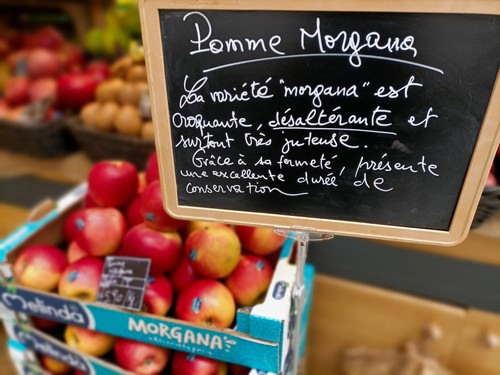 Pomme Morgana
La variété "morgana" est
croquante, désaltérante et
surtout très juteuse.
Grâce à sa fermeté, présente
une excellente durée de
conservation
Melinda
MORGANA
Melinda